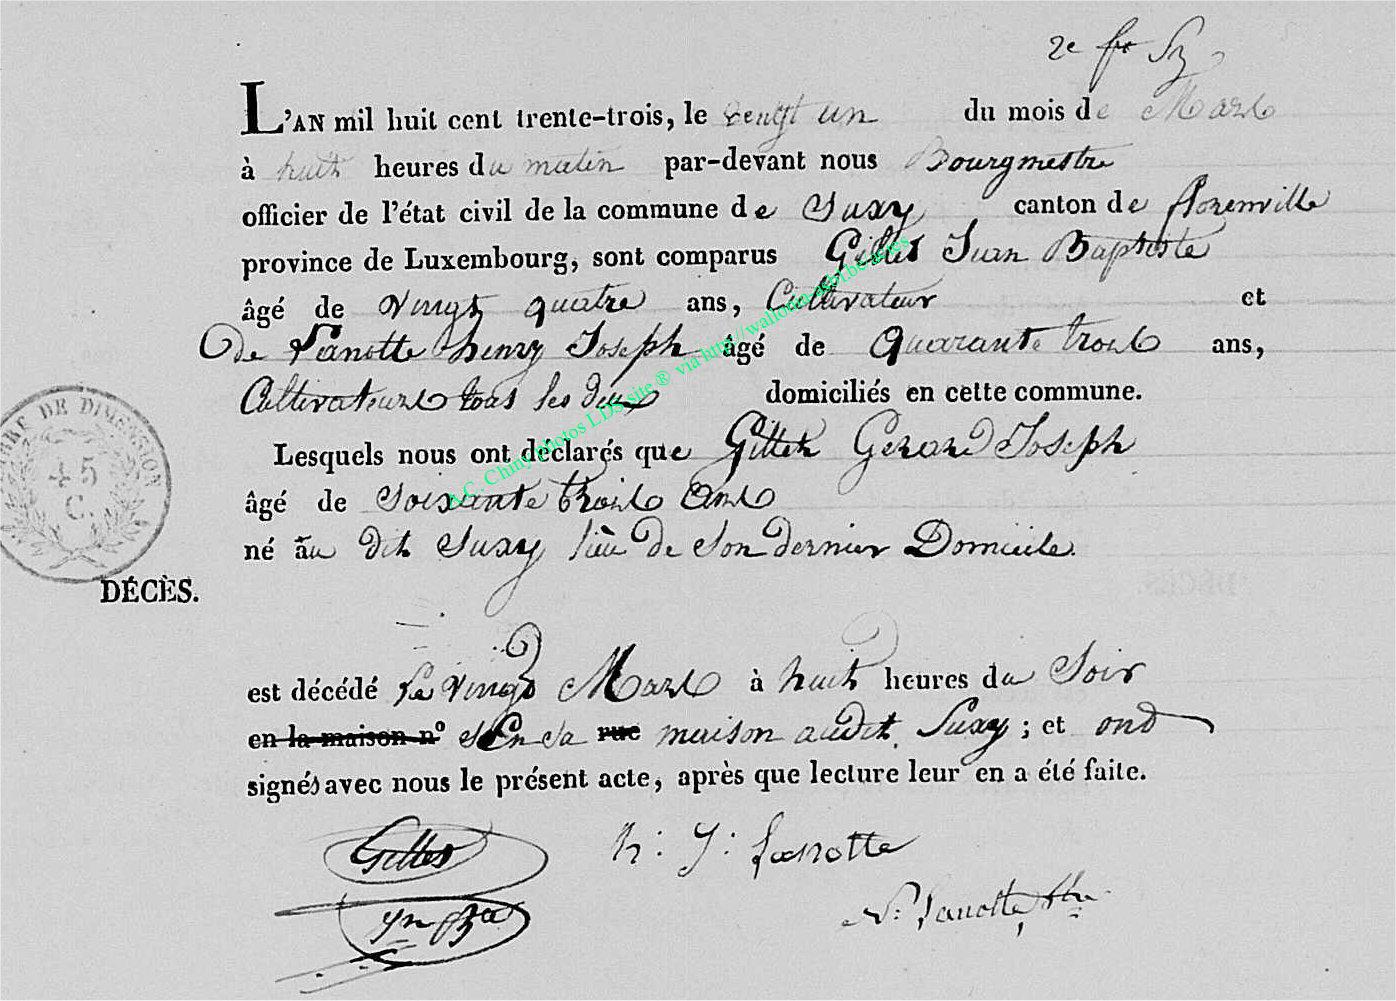 2e
L'AN mil huit cent trente-trois, le vengt un du mois de Mars
à huit heures du matin par-devant nous Bourgmestre
officier de l'état civil de la commune de Suxy canton de florenville
province de Luxembourg, sont comparus Gilles Jean Baptiste
âgé de vingt quatre ans, Cultivateur et
de Lanotte henry Joseph âgé de Quarante trois ans,
Cultivateurs tous les deux domiciliés en cette commune.
Lesquels nous ont déclarés que Gillet Gerard Joseph
âgé de soixante trois ans
né au dit Suxy lieu de son dernier Domicile.
TIMBRE DE DIMENSION
45
C.
DÉCÈS.
est décédé le vingt Mars à huit heures du Soir
en la maison n° En sa rue maison audit Suxy ; et ond
signés avec nous le présent acte, après que lecture leur en a été faite.
Gilles h: J: Lanotte
N: Lanotte
A.C. Chiny photos LDS site ® via http://wallonia-asbl.be/actes